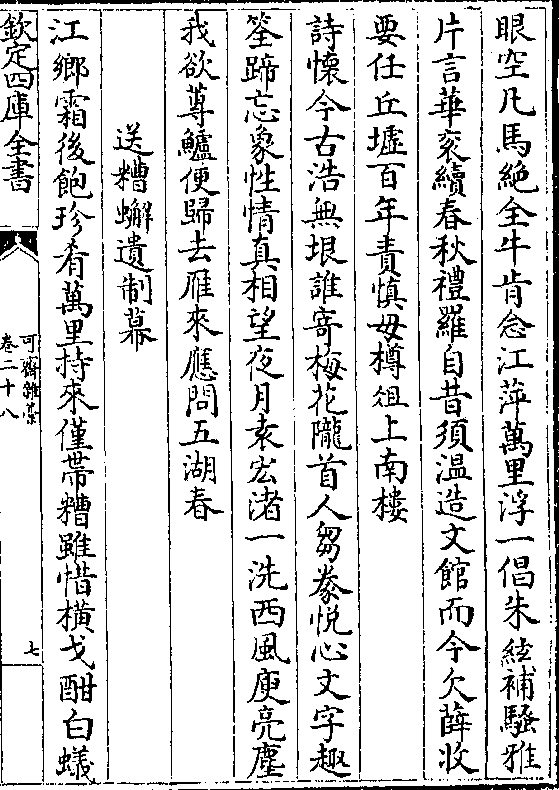 眼空凡馬絶全牛肯念江萍萬里浮一倡朱絃補騷雅
片言華衮續春秋禮羅自昔須温造文館而今欠薛收
要任丘墟百年責慎毋樽俎上南樓
詩懐今古浩無垠誰寄梅花隴首人芻豢悦心文字趣
筌蹄忘象性情真相望夜月袁宏渚一洗西風庾亮塵
我欲蓴鱸便歸去雁來應問五湖春
送糟蠏遺制幕
江鄉霜後飽珍肴萬里持來僅帶糟雖惜橫戈酣白蟻
欽定四庫全書
可齋雜藳
卷二十八
七